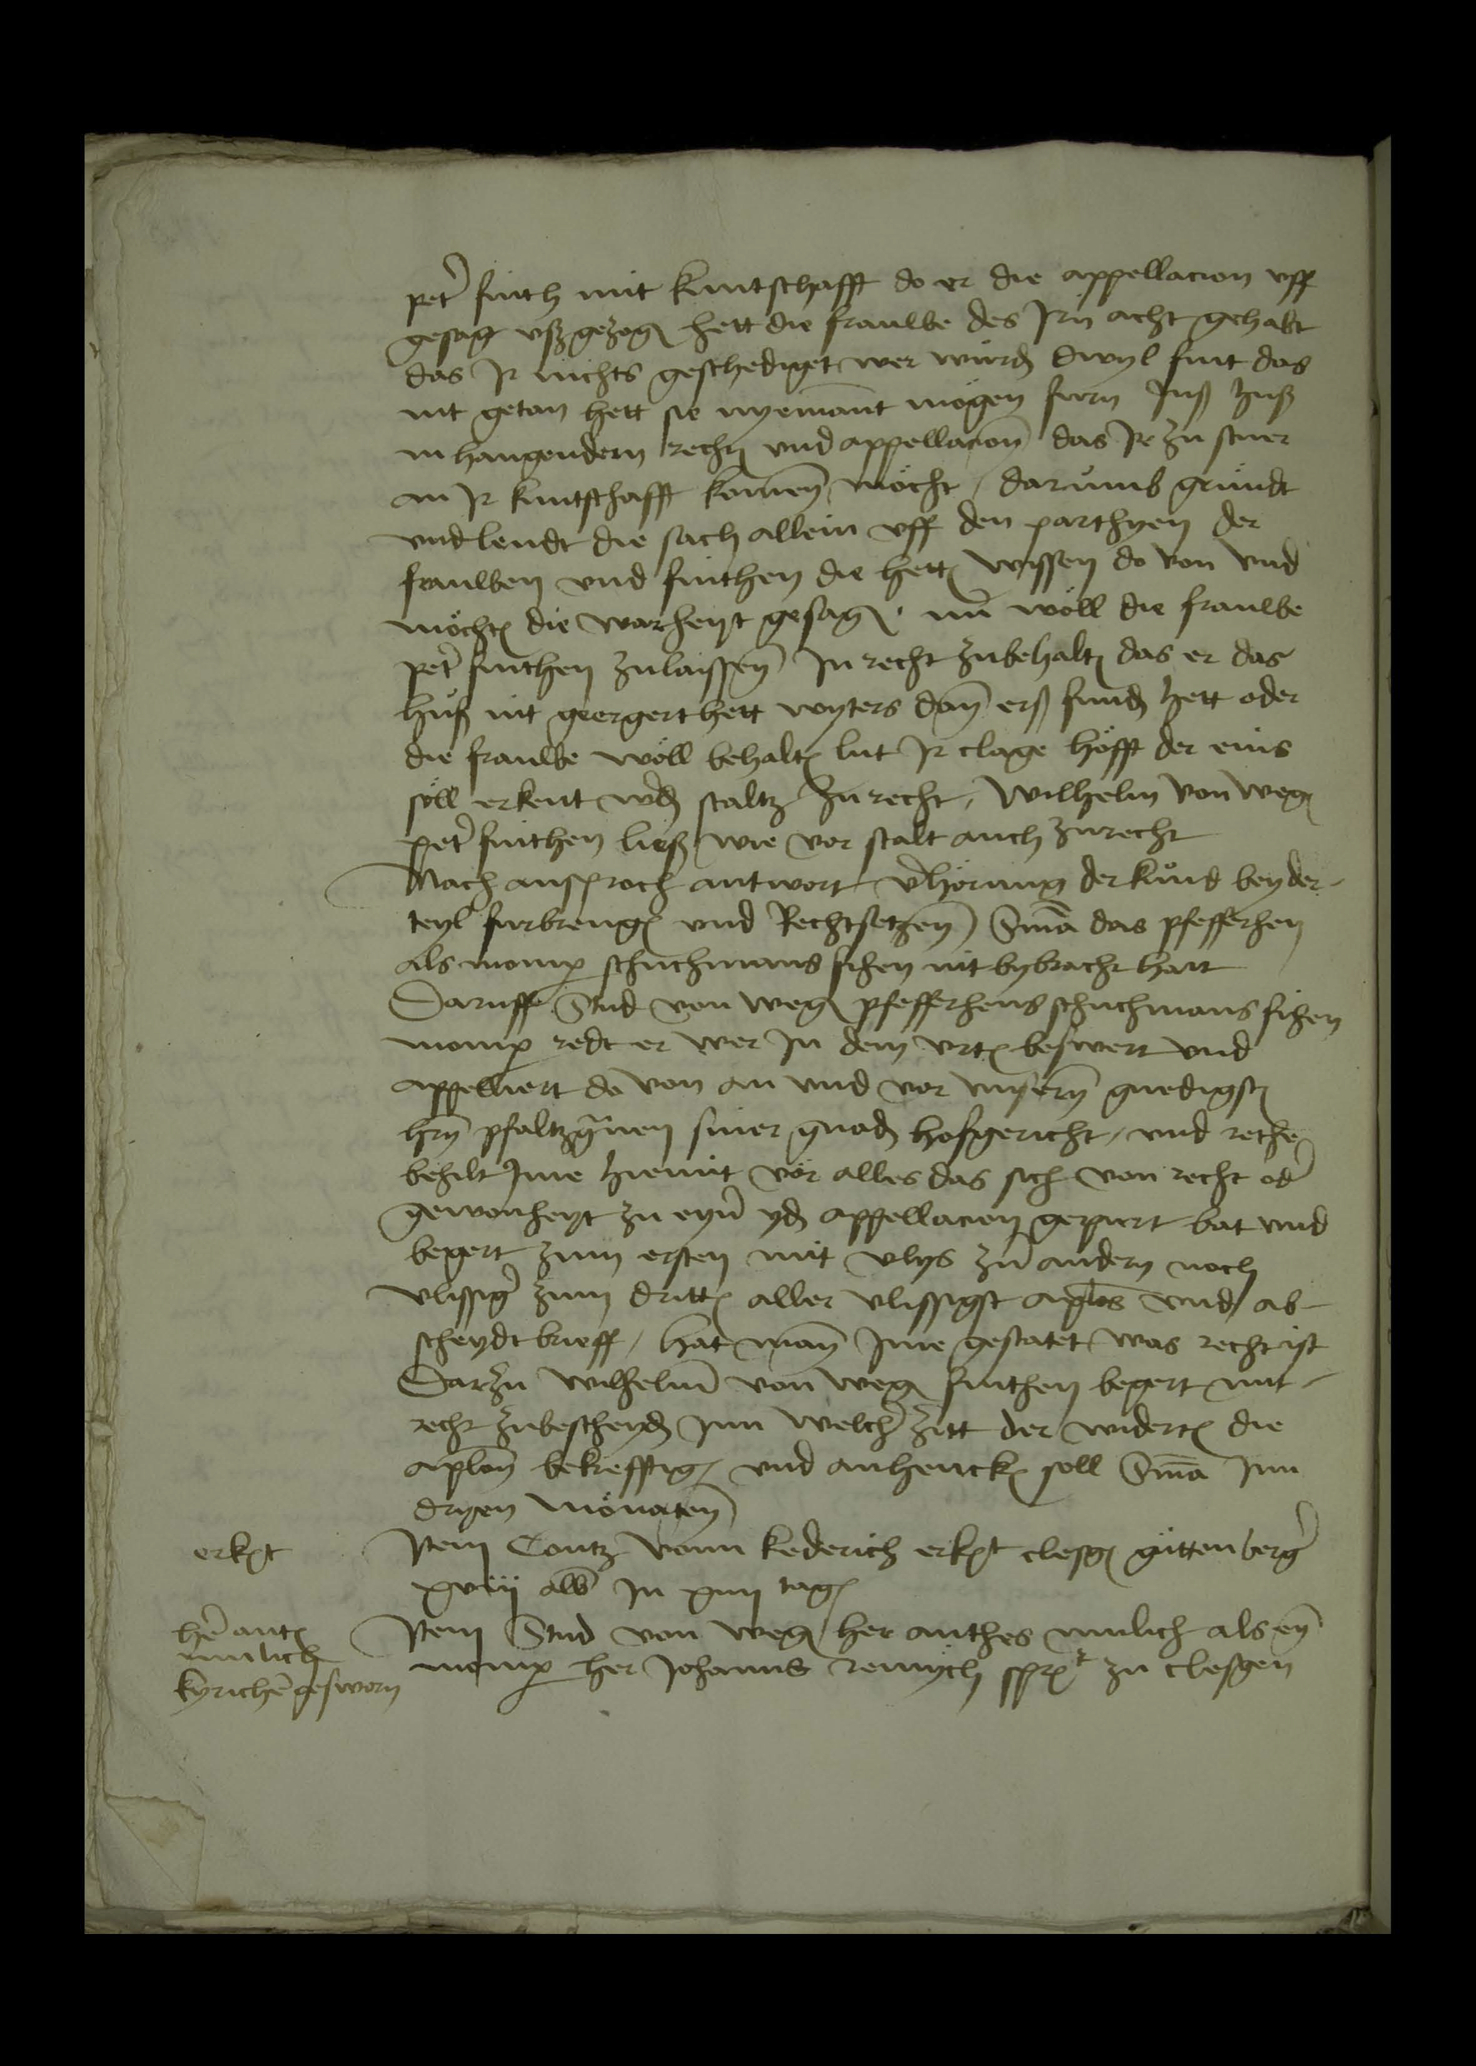 pet' finth mit kuntschafft do er die appellacion vff
gesag vßgezog hett die frauwe des Irn acht gehabt
das Ir nichts geschediget wer wurd dwyl fint das
nit getan hett sie nyemant mögen furn huß
In hangendem recht vnd appellacion das Ir zu stuer
an Ir kuntschafft komen möcht / darumb grundt
vnd lendt die sach allein vff den parthyen der
frauwen vnd finthen die hett wissen do von vnd
möcht die warheyt gesag · nu wöll die frauwe
pet' finthen zulaissen In recht zubehalt das er das
huß nit geergert hett wyters dan erß fund hett oder
die frauwe wöll behalt lut Ir clage höfft der eins
söll erkent wd staltz zu recht / wilhelm von weg
pet' finthen ließ wie vor stalt auch zu recht
Nach ansproch antwort v'hörung der kund beyder-
teyl furbreng vnd Rechtsetzen Sma das pfefferhen
als momp schuchmans fihen nit bybracht hatt
Daruff Stud von weg pfefferhens schuchmans fihen
momp redt er wer In dem vrt beswert vnd
appelliert do von an vnd vor vnsern gnedigst
hrn pfaltzgrauen siner gnad hofgericht / vnd rethe
behilt Ime hiemit vor alles das sich von recht od'
gewonheyt zu eyn' yd appellacion gepurt bat vnd
begert zum ersten mit vlys zu andern noch
vlissig' zum dritt aller vlissigst aplos vnd ab-
scheydt brieff / hat man Ime gestatet was recht ist
Darzu wilhelm von weg finthen begert mit-
recht zubescheyd Inn welch' zitt der widert die
aplon bekrefftig vnd anhenck soll Sma Inn
dryen Monaten
erkt Item Contz vonn kederich erkt clesg guttenberg'
xviij alb In xiiij tag
her ant Item Stud von weg her anthes vnlich als ey
vnlich momp her Johanns remych spr zu clesgen
kyrichegesworn